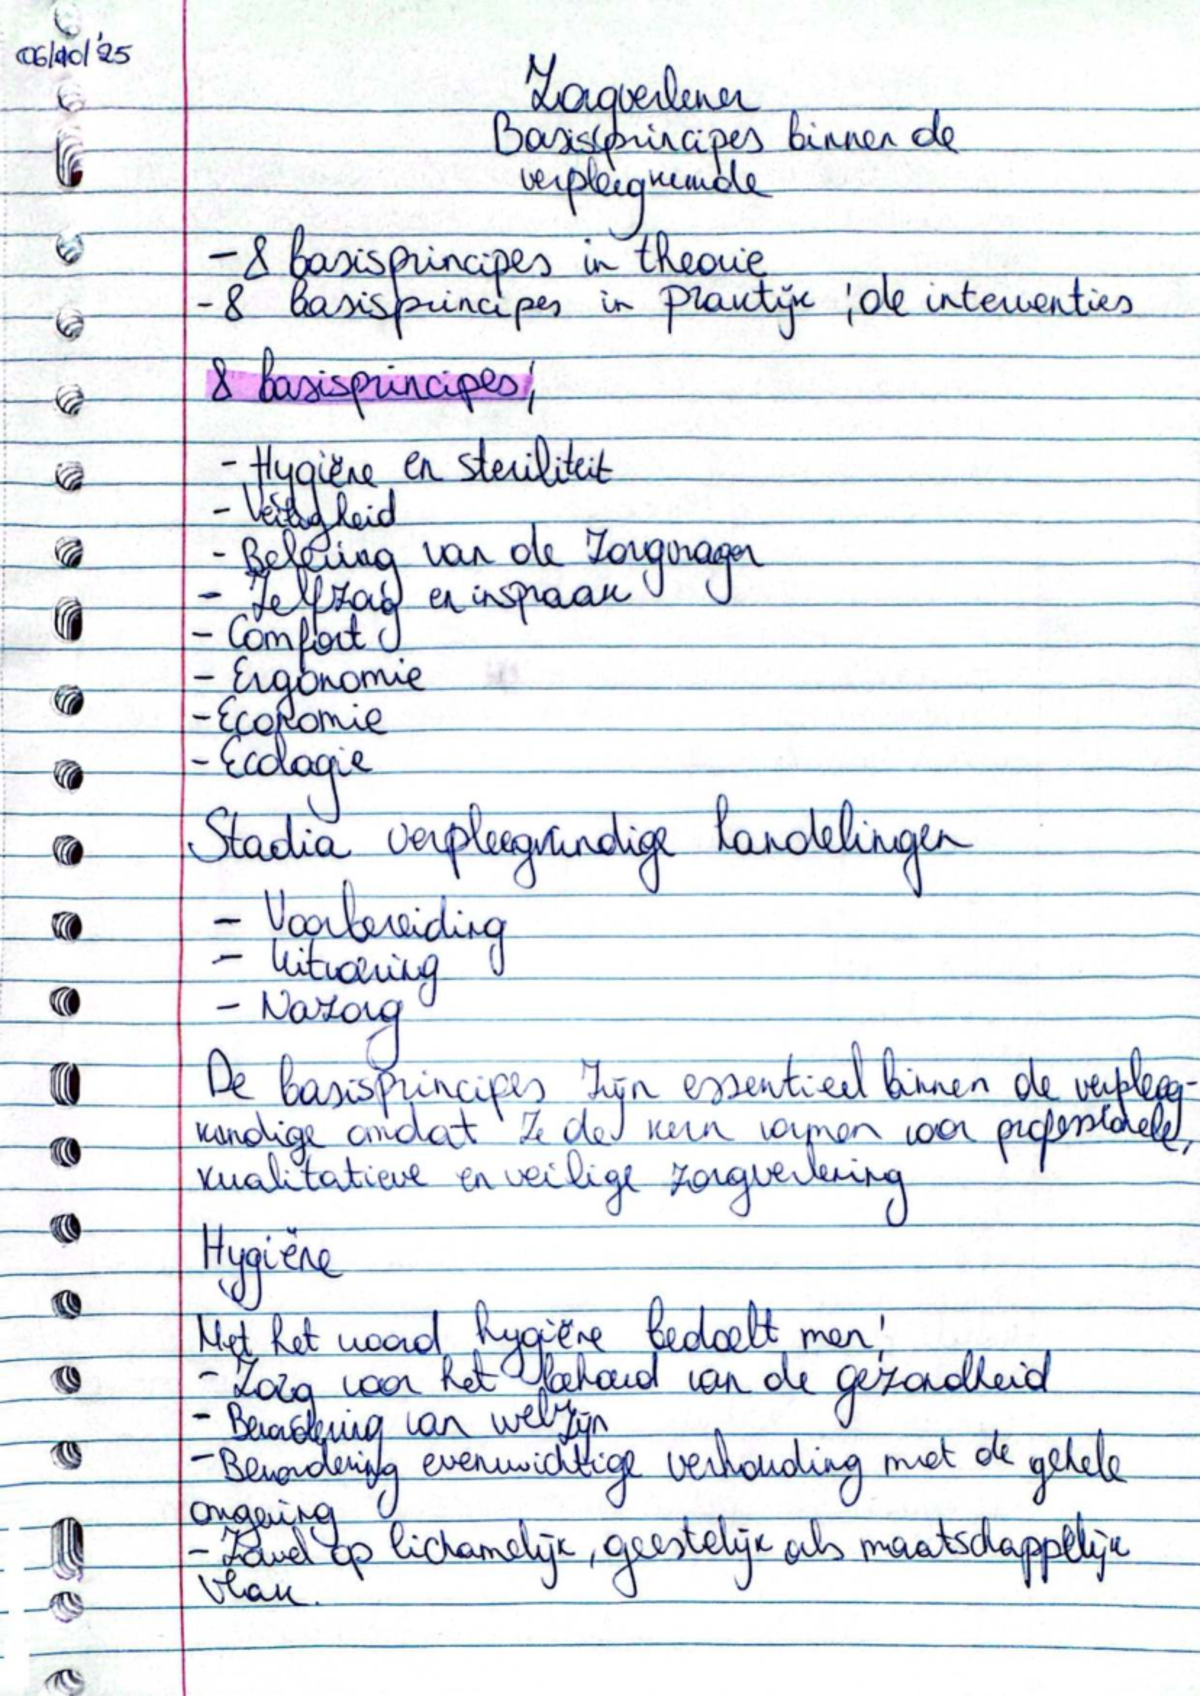 06/10/'25
Zorgverlener
Basisprincipes binnen de
verpleegkunde
- 8 basisprincipes in theorie
- 8 basisprincipes in praktijk ; de interventies
8 basisprincipes;
- Hygiëne en steriliteit
- Veiligheid
- Beleving van de Zorgvrager
- Zelfzorg en inspraak
- Comfort
- Ergonomie
- Economie
- Ecologie
Stadia verpleegkundige handelingen
- Voorbereiding
- Uitvoering
- Nazorg
De basisprincipes zijn essentieel binnen de verpleeg-
kundige omdat ze de kern vormen voor professionele,
kwalitatieve en veilige zorgverlening
Hygiëne
Met het woord hygiëne bedoelt men:
- Zorg voor het behoud van de gezondheid
- Bevordering van welzijn
- Bevordering evenwichtige verhouding met de gehele
omgeving
- Zowel op lichamelijk, geestelijk als maatschappelijk
vlak.